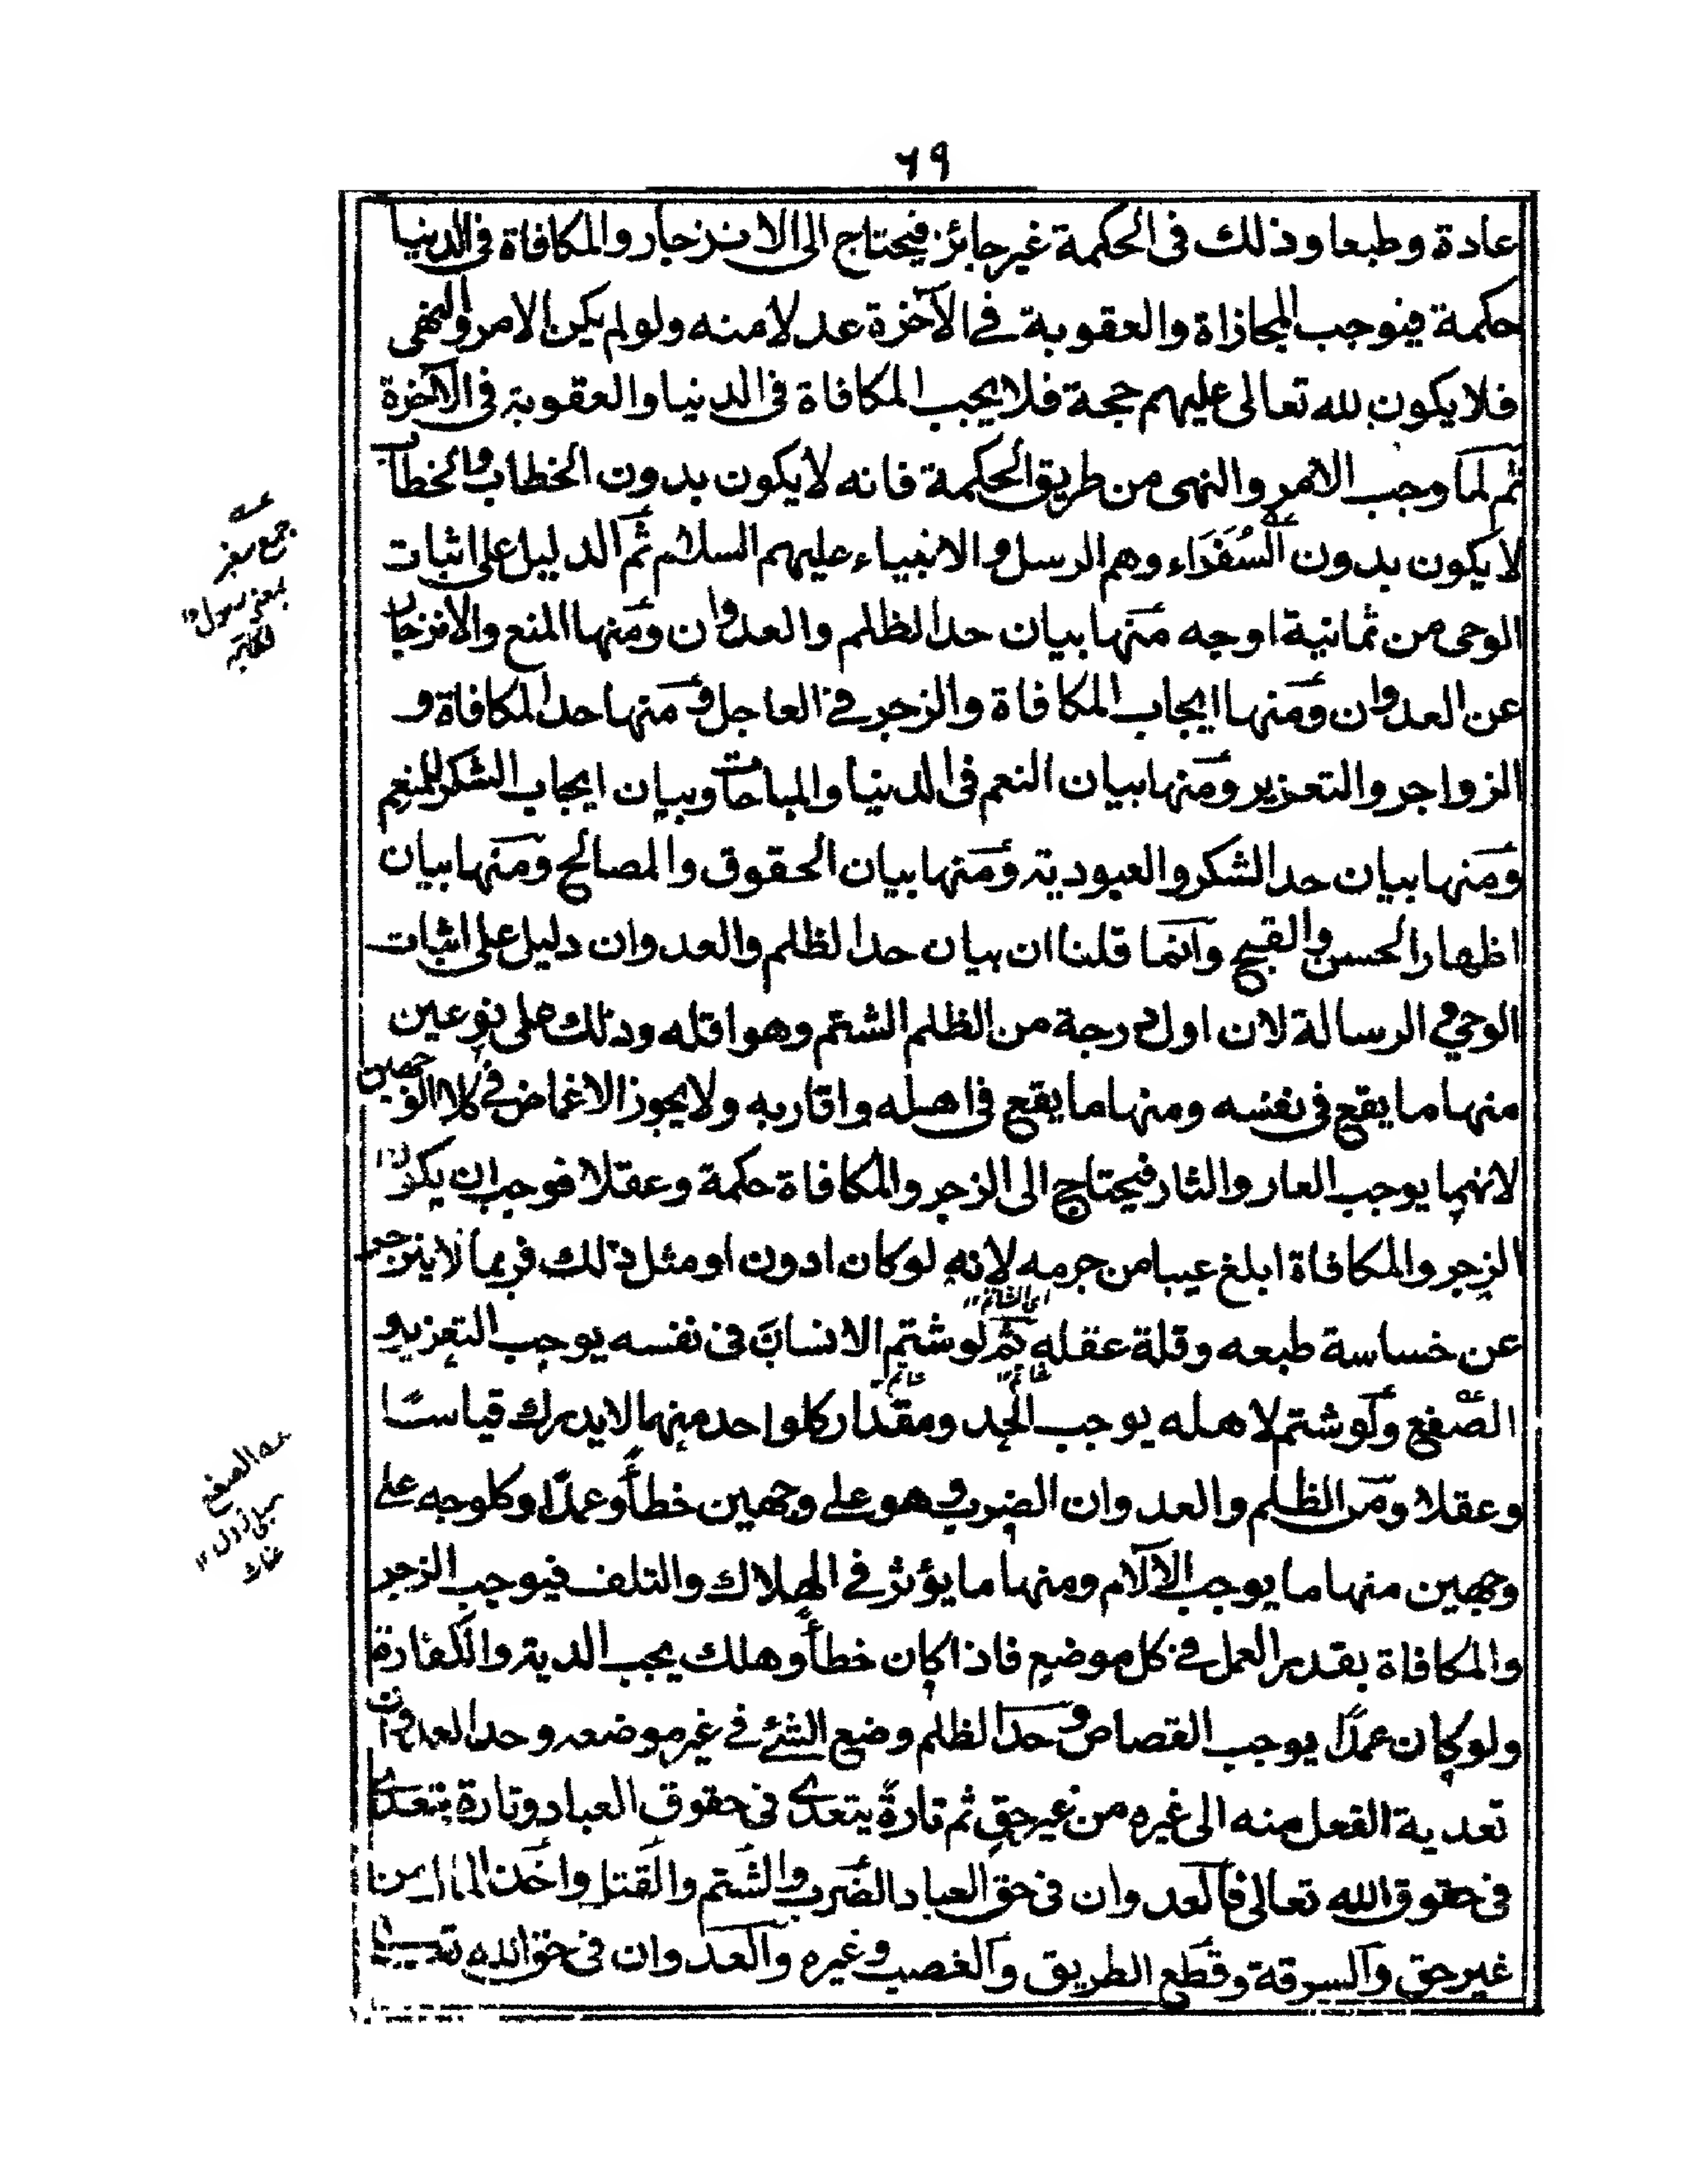 ٦٩
عادة وطبعا وذلك فى الحكمة غير جائز فيحتاج الى الانزجار والمكافاة فى الدنيا
حكمة فيوجب المجازاة والعقوبة فى الآخرة عدلا منه ولو لم يكن الامر والنهى
فلا يكون لله تعالى عليهم حجة فلا يجب المكافاة فى الدنيا والعقوبة فى الآخرة
ثم لما وجب الامر والنهى من طريق الحكمة فانه لا يكون بدون الخطاب والخطاب
لا يكون بدون السُفَرَاء وهم الرسل والانبياء عليهم السلام ثم الدليل على اثبات
الوحى من ثمانية اوجه منها بيان حد الظلم والعدوان ومنها المنع والانزجار
عن العدوان ومنها ايجاب المكافاة والزجر فى العاجل ومنها حد المكافاة و
الزواجر والتعزير ومنها بيان النعم فى الدنيا والمباحات وبيان ايجاب الشكر للمنعم
ومنها بيان حد الشكر والعبودية ومنها بيان الحقوق والمصالح ومنها بيان
اظهار الحسن والقبيح وانما قلنا ان بيان حد الظلم والعدوان دليل على اثبات
الوحى و الرسالة لان اول درجة من الظلم الشتم وهو اقله وذلك على نوعين
منها ما يقع فى نفسه ومنها ما يقع فى اهله واقاربه ولا يجوز الاغماض فى كلا الوجهين
لانهما يوجب العار والثار فيحتاج الى الزجر والمكافاة حكمة وعقلا فوجب ان يكون
الزجر والمكافاة ابلغ عيبا من جرمه لانه لو كان ادون او مثل ذلك فربما لا ينزجر
اى الشاتم ١٢
عن خساسة طبعه وقلة عقله ثم لو شتم الانسان فى نفسه يوجب التعزير و
شاتم ١٢ شاتم
الصفع ولو شتم لاهله يوجب الحد ومقدار كل واحد منهما لا يدرك قياسًا
وعقلا ومن الظلم والعدوان الضرب وهو على وجهين خطأً وعمدًا وكل وجه على
وجهين منها ما يوجب الآلام ومنها ما يؤثر فى الهلاك والتلف فيوجب الزجر
والمكافاة بقدر العمل فى كل موضع فاذا كان خطأً وهلك يجب الدية والكفارة
ولو كان عمدًا يوجب القصاص وحد الظلم وضع الشئ فى غير موضعه وحد العدوان
تعدية الفعل منه الى غيره من غير حق ثم تارةً يتعدى فى حقوق العباد وتارة يتعدى
فى حقوق الله تعالى فالعدوان فى حق العباد الضرب والشتم والقتل واخذ المال من
غير حق والسرقة وقطع الطريق والغصب وغيره والعدوان فى حق الله تعالى
عـه
جمع سفير
بمعنى رسول ١٢
عـه الصفع
سيلى زدن ١٢
غياث